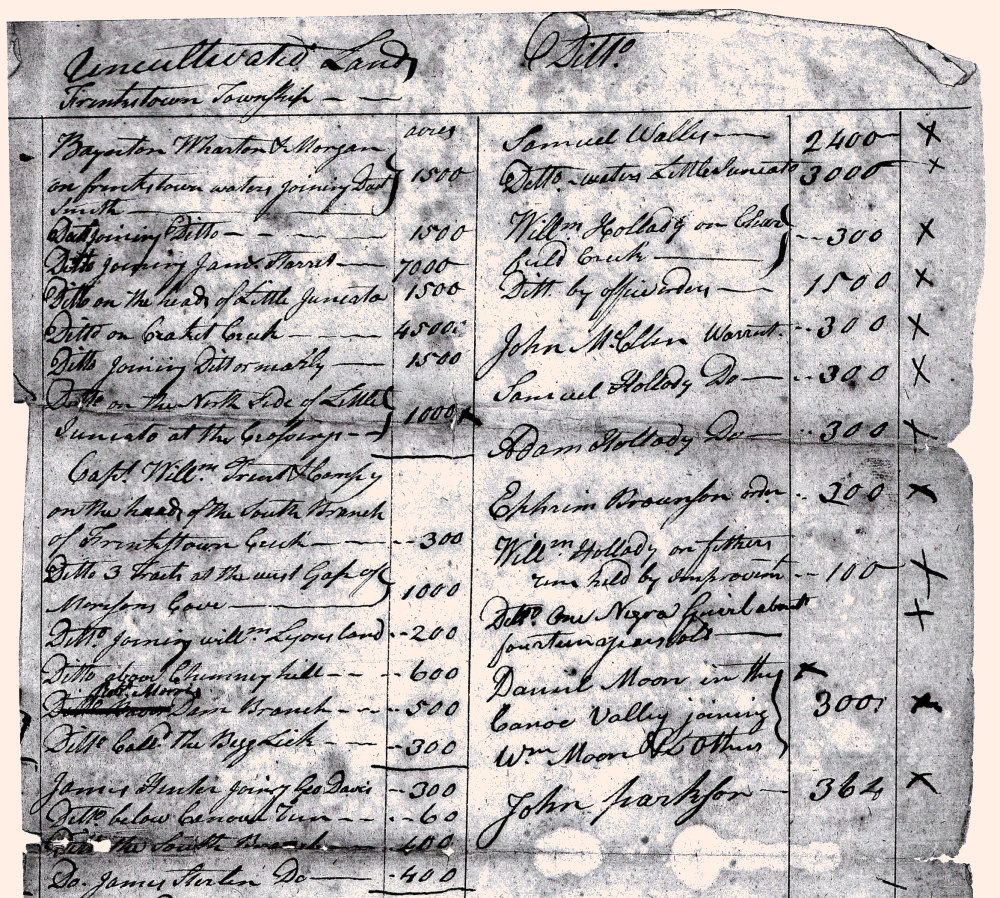 Uncultivated Land
Frenkstown Township
acres
Bayenton Wharton & Morgan
on frenkstown waters joining Dad 1500
Smith
Ditto joining Ditto 1500
Ditto joining James Harris 7000
Ditto on the heads of Little Juneata 1500
Ditto on Creek 4500
Ditto Joining Ditto 1500
Ditto on the North Side of Little
Juneata at the Crossings 1000
Capt. Willm. Trent & Compy
on the heads of the South Branch
of Frenkstown Creek 300
Ditto 3 Tracts at the west Gap of
Morrisons Cove 1000
Ditto. Joining willm Lyons land 200
Ditto above Chimney hill 600
Dem Branch 500
Ditto. Call'd. the Bigg Lick 300
James Hunter joining Geo Davis 300
Ditto. below Run 60
the South Branch 400
Do. James Do 400
Ditto.
Samuel Wallis 2400 X
Ditto. waters Little Juneata 3000 X
Willm Hollady on Clear
feild Creek 300 X
Ditt. by office orders 1500 X
John McClen Warrent. 300 X
Samuel Hollady Do 300 X
Adam Hollady Do 300 X
Ephrim Brounson order 200 X
Willm Hollady on
run held by Improvemt 100 X
Ditto. One Negra Guirl about X
fourteen years old
Daniel Moore in the X
Canoe Valley joining 300 X
Wm Moore & Others
John parkson 364 X